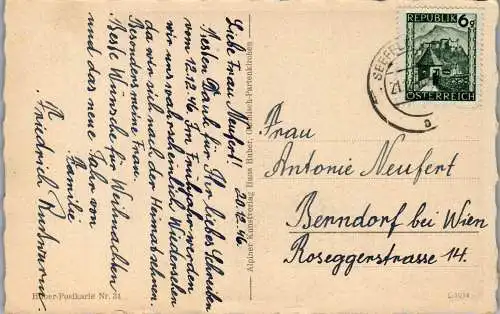 20.12.46
Liebe Frau Neufert!
Besten Dank für Ihr liebes Schreiben
vom 12.12.46. Im Frühjahr werden
wir uns wahrscheinlich Wiedersehen
da wir sich nach der Heimat sehnen
Besonders meine Frau.
Beste Wünsche für Weihnachten
und das neue Jahr von
Familie
Friedrich
Alpiner Kunstverlag Hans Huber, Garmisch-Partenkirchen
Huber-Postkarte Nr. 31
REPUBLIK 6g
ÖSTERREICH
SEEFEL
Frau
Antonie Neufert
Berndorf bei Wien
Roseggerstrasse 14.